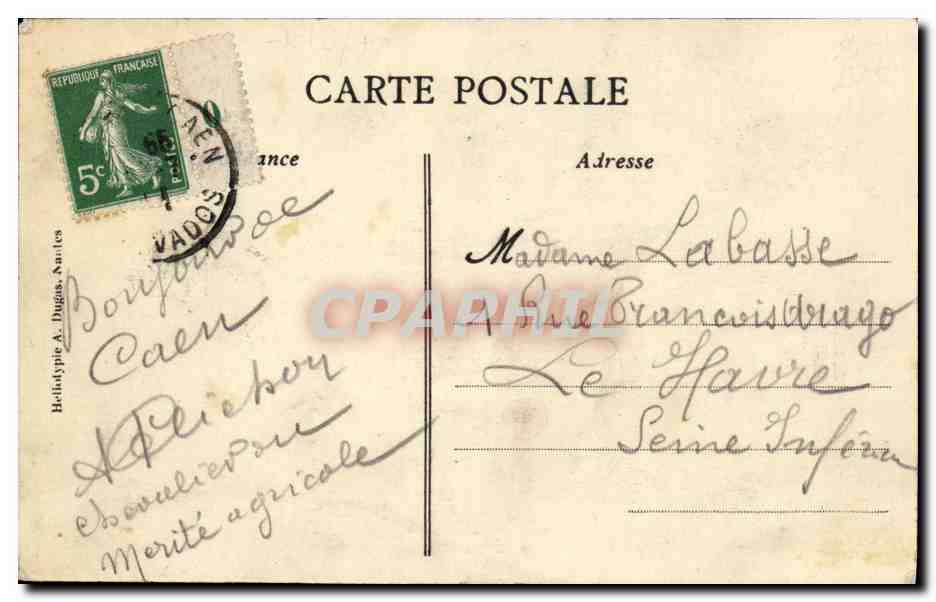 CARTE POSTALE
REPUBLIQUE FRANÇAISE
5c
POSTES
0
CAEN
VADOS
ance
Adresse
Bonjour de
Caen
chevalier du
Merité agricole
Madame Labasse
Rue François Arago
Le Havre
Seine Inférieu
Heliotypie A. Dugas, Nantes
CPAPHIL